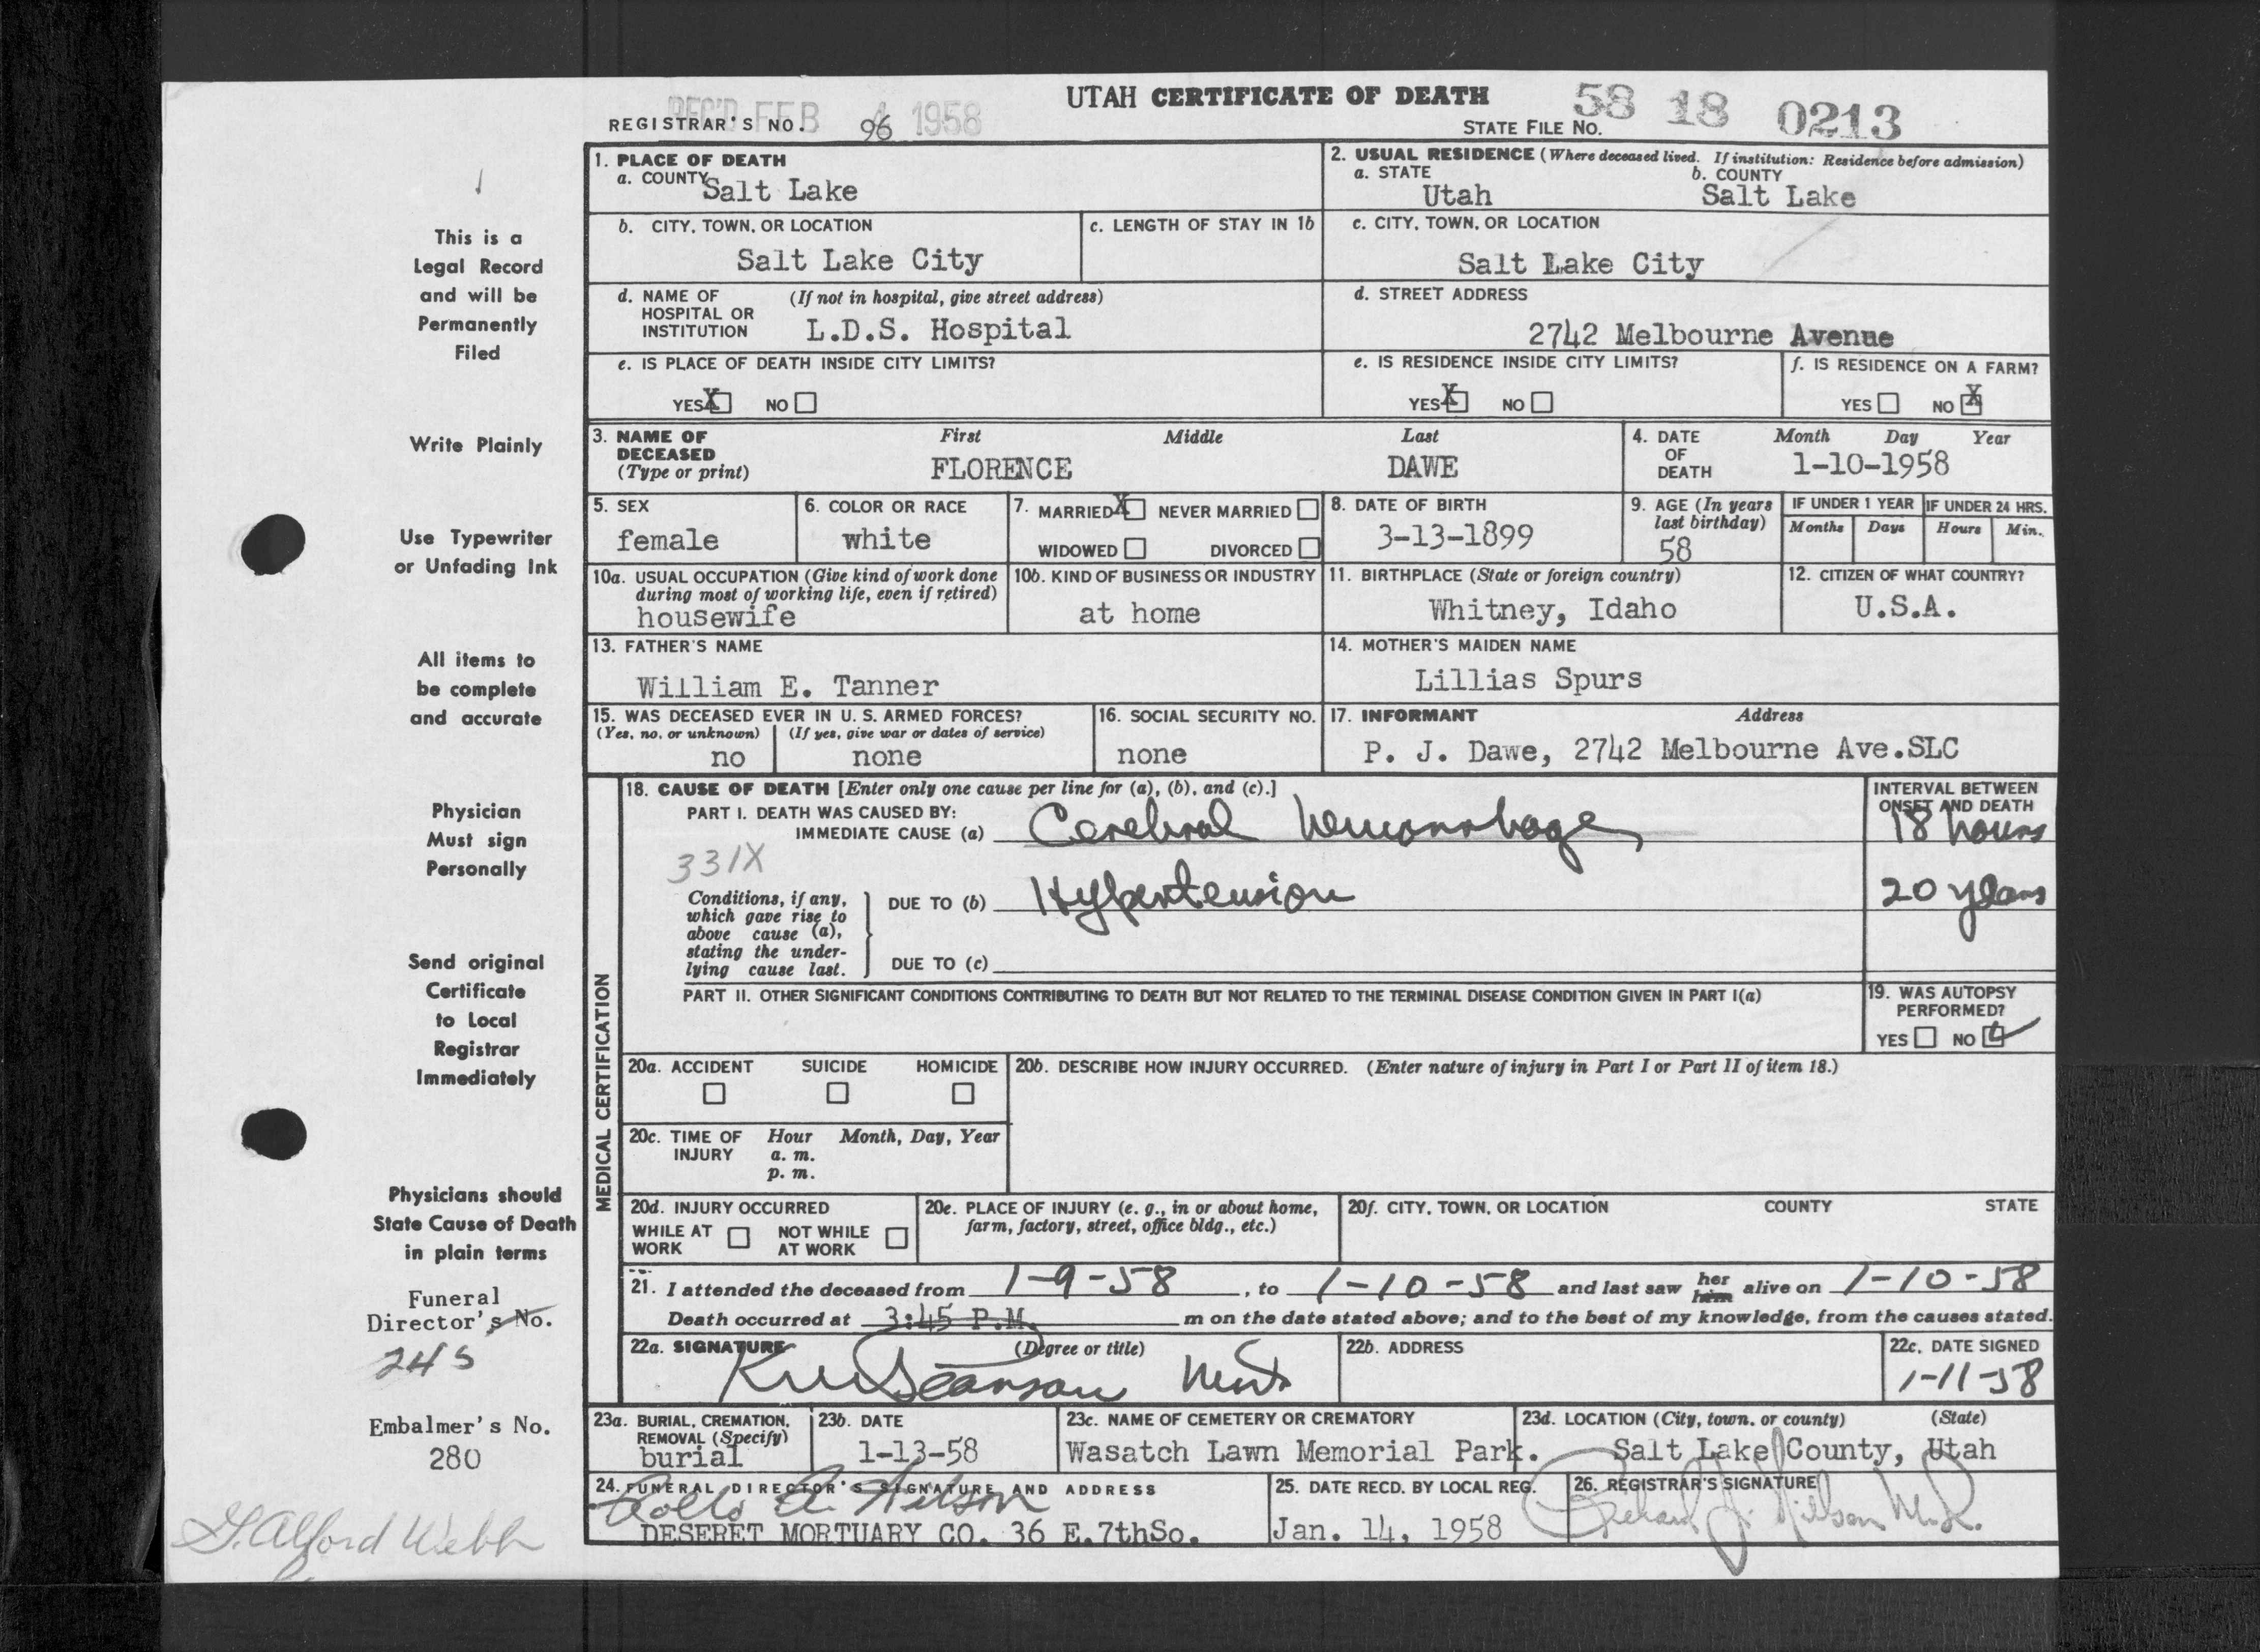 UTAH CERTIFICATE OF DEATH
REC'D FEB 4 1958
REGISTRAR'S NO. 96
STATE FILE NO. 58 18 0213
1. PLACE OF DEATH
a. COUNTY Salt Lake
2. USUAL RESIDENCE (Where deceased lived. If institution: Residence before admission)
a. STATE Utah b. COUNTY Salt Lake
b. CITY, TOWN, OR LOCATION Salt Lake City
c. LENGTH OF STAY IN 1b
c. CITY, TOWN, OR LOCATION Salt Lake City
d. NAME OF HOSPITAL OR INSTITUTION (If not in hospital, give street address)
L.D.S. Hospital
d. STREET ADDRESS
2742 Melbourne Avenue
e. IS PLACE OF DEATH INSIDE CITY LIMITS?
YES X NO
e. IS RESIDENCE INSIDE CITY LIMITS?
YES X NO
f. IS RESIDENCE ON A FARM?
YES NO X
3. NAME OF DECEASED (Type or print)
First Middle Last
FLORENCE DAWE
4. DATE OF DEATH Month Day Year
1-10-1958
5. SEX
female
6. COLOR OR RACE
white
7. MARRIED X NEVER MARRIED
WIDOWED DIVORCED
8. DATE OF BIRTH
3-13-1899
9. AGE (In years last birthday)
58
IF UNDER 1 YEAR IF UNDER 24 HRS.
Months Days Hours Min.
10a. USUAL OCCUPATION (Give kind of work done during most of working life, even if retired)
housewife
10b. KIND OF BUSINESS OR INDUSTRY
at home
11. BIRTHPLACE (State or foreign country)
Whitney, Idaho
12. CITIZEN OF WHAT COUNTRY?
U.S.A.
13. FATHER'S NAME
William E. Tanner
14. MOTHER'S MAIDEN NAME
Lillias Spurs
15. WAS DECEASED EVER IN U. S. ARMED FORCES?
(Yes, no, or unknown) (If yes, give war or dates of service)
no none
16. SOCIAL SECURITY NO.
none
17. INFORMANT Address
P. J. Dawe, 2742 Melbourne Ave.SLC
MEDICAL CERTIFICATION
18. CAUSE OF DEATH [Enter only one cause per line for (a), (b), and (c).]
INTERVAL BETWEEN ONSET AND DEATH
PART I. DEATH WAS CAUSED BY:
IMMEDIATE CAUSE (a) Cerebral hemorrhage 18 hours
331X
Conditions, if any, which gave rise to above cause (a), stating the underlying cause last.
DUE TO (b) Hypertension 20 years
DUE TO (c)
PART II. OTHER SIGNIFICANT CONDITIONS CONTRIBUTING TO DEATH BUT NOT RELATED TO THE TERMINAL DISEASE CONDITION GIVEN IN PART I(a)
19. WAS AUTOPSY PERFORMED?
YES NO
20a. ACCIDENT SUICIDE HOMICIDE
20b. DESCRIBE HOW INJURY OCCURRED. (Enter nature of injury in Part I or Part II of item 18.)
20c. TIME OF INJURY Hour Month, Day, Year
a. m.
p. m.
20d. INJURY OCCURRED
WHILE AT WORK NOT WHILE AT WORK
20e. PLACE OF INJURY (e. g., in or about home, farm, factory, street, office bldg., etc.)
20f. CITY, TOWN, OR LOCATION COUNTY STATE
21. I attended the deceased from 1-9-58, to 1-10-58 and last saw her him alive on 1-10-58
Death occurred at 3:45 P.M. m on the date stated above; and to the best of my knowledge, from the causes stated.
22a. SIGNATURE (Degree or title)
22b. ADDRESS
22c. DATE SIGNED
1-11-58
23a. BURIAL, CREMATION, REMOVAL (Specify)
burial
23b. DATE
1-13-58
23c. NAME OF CEMETERY OR CREMATORY
Wasatch Lawn Memorial Park.
23d. LOCATION (City, town, or county) (State)
Salt Lake County, Utah
24. FUNERAL DIRECTOR'S SIGNATURE AND ADDRESS
DESERET MORTUARY CO. 36 E.7thSo.
25. DATE RECD. BY LOCAL REG.
Jan. 14, 1958
26. REGISTRAR'S SIGNATURE
This is a
Legal Record
and will be
Permanently
Filed
Write Plainly
Use Typewriter
or Unfading Ink
All items to
be complete
and accurate
Physician
Must sign
Personally
Send original
Certificate
to Local
Registrar
Immediately
Physicians should
State Cause of Death
in plain terms
Funeral
Director's No.
245
Embalmer's No.
280
G. Alford Webb